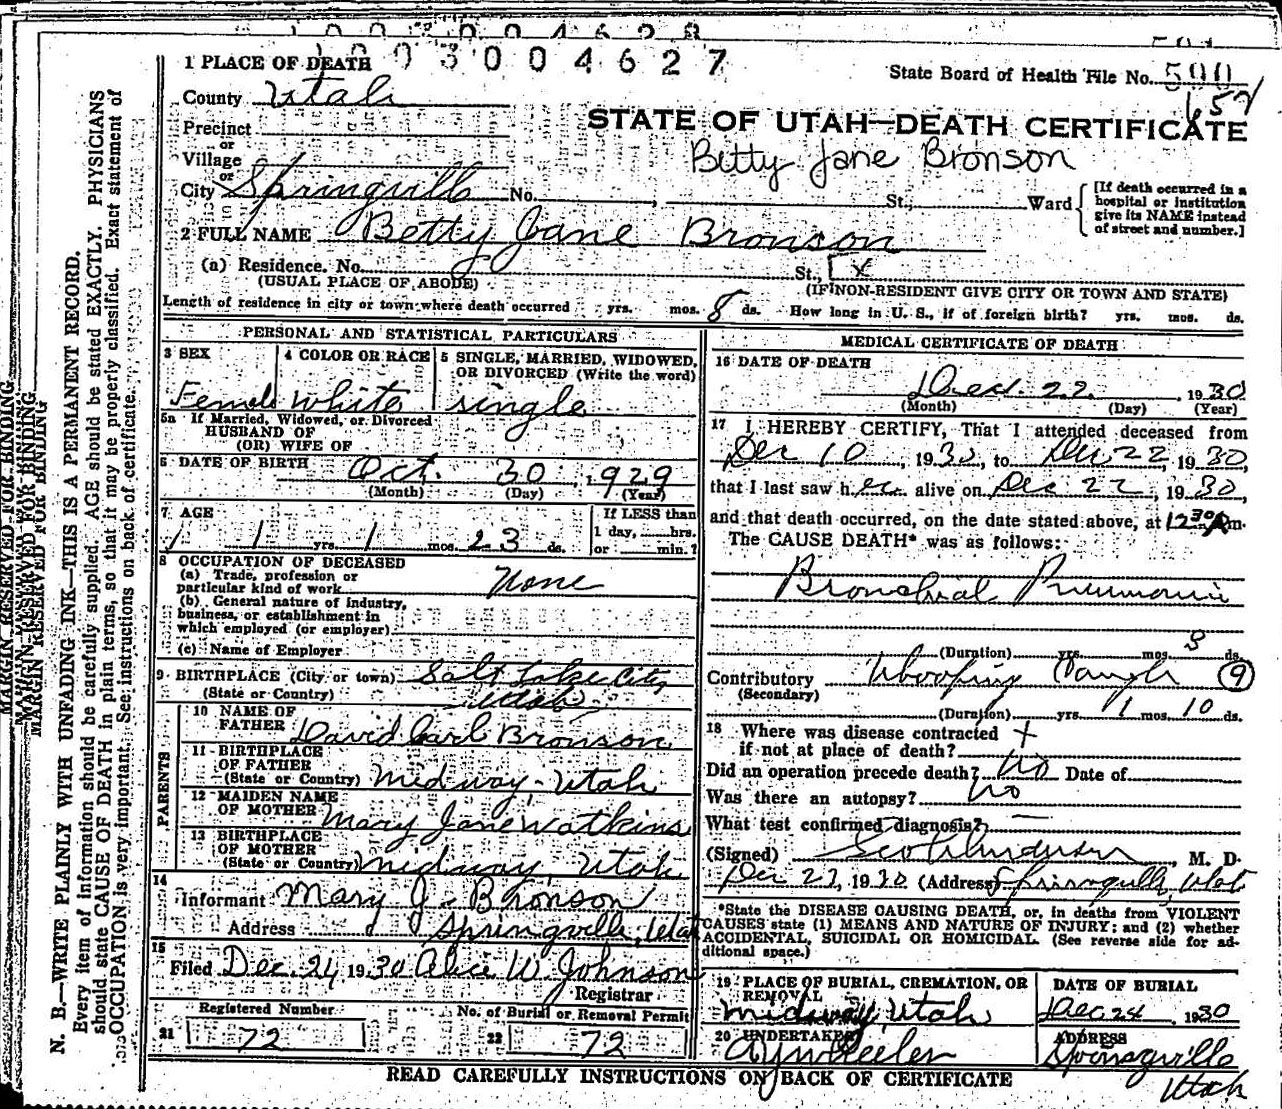 1003004628
1003004627
1 PLACE OF DEATH
State Board of Health File No. 590
652
County Utah
STATE OF UTAH—DEATH CERTIFICATE
Precinct
or
Betty Jane Bronson
Village
or
City Springville No. , St., Ward
[If death occurred in a
hospital or institution
give its NAME instead
of street and number.]
2 FULL NAME Betty Jane Bronson
(a) Residence. No. St., x
(USUAL PLACE OF ABODE) (IF NON-RESIDENT GIVE CITY OR TOWN AND STATE)
Length of residence in city or town where death occurred yrs. mos. 8 ds. How long in U. S., if of foreign birth? yrs. mos. ds.
PERSONAL AND STATISTICAL PARTICULARS
3 SEX 4 COLOR OR RACE 5 SINGLE, MARRIED, WIDOWED,
OR DIVORCED (Write the word)
Female white single
5a If Married, Widowed, or Divorced
HUSBAND OF
(OR) WIFE OF
6 DATE OF BIRTH Oct. 30, 1929
(Month) (Day) (Year)
7 AGE If LESS than
1 day, hrs.
1 yrs. 1 mos. 23 ds. or min.?
8 OCCUPATION OF DECEASED
(a) Trade, profession or
particular kind of work None
(b) General nature of industry,
business, or establishment in
which employed (or employer)
(c) Name of Employer
9 BIRTHPLACE (City or town) Salt Lake City
(State or Country) Utah
PARENTS
10 NAME OF
FATHER David Carl Bronson
11 BIRTHPLACE
OF FATHER
(State or Country) Midway, Utah
12 MAIDEN NAME
OF MOTHER Mary Jane Watkins
13 BIRTHPLACE
OF MOTHER
(State or Country) Midway, Utah
14
Informant Mary J. Bronson
Address Springville, Utah
15
Filed Dec. 24, 1930 Alice W Johnson
Registrar
Registered Number No. of Burial or Removal Permit
21 72 22 72
MEDICAL CERTIFICATE OF DEATH
16 DATE OF DEATH
Dec. 22, 1930
(Month) (Day) (Year)
17 I HEREBY CERTIFY, That I attended deceased from
Dec 10, 1930, to Dec 22, 1930,
that I last saw her alive on Dec 22, 1930,
and that death occurred, on the date stated above, at 12 30 A m.
The CAUSE DEATH* was as follows:
Bronchial Pneumonia
(Duration) yrs. mos. 8 ds.
Contributory Whooping Cough 9
(Secondary)
(Duration) yrs. 1 mos. 10 ds.
18 Where was disease contracted
if not at place of death?
Did an operation precede death? No Date of
Was there an autopsy? No
What test confirmed diagnosis? —
(Signed) , M. D.
Dec 23, 1930 (Address) Springville, Utah
*State the DISEASE CAUSING DEATH, or, in deaths from VIOLENT
CAUSES state (1) MEANS AND NATURE OF INJURY; and (2) whether
ACCIDENTAL, SUICIDAL OR HOMICIDAL. (See reverse side for ad-
ditional space.)
19 PLACE OF BURIAL, CREMATION, OR
REMOVAL
Midway, Utah
DATE OF BURIAL
Dec 24 1930
20 UNDERTAKER
A Y Wheeler
ADDRESS
Springville
Utah
READ CAREFULLY INSTRUCTIONS ON BACK OF CERTIFICATE
MARGIN RESERVED FOR BINDING
MARGIN RESERVED FOR BINDING
MARGIN RESERVED FOR BINDING
N. B.—WRITE PLAINLY WITH UNFADING INK—THIS IS A PERMANENT RECORD.
Every item of information should be carefully supplied. AGE should be stated EXACTLY. PHYSICIANS
should state CAUSE OF DEATH in plain terms, so that it may be properly classified. Exact statement of
OCCUPATION is very important. See instructions on back of certificate.